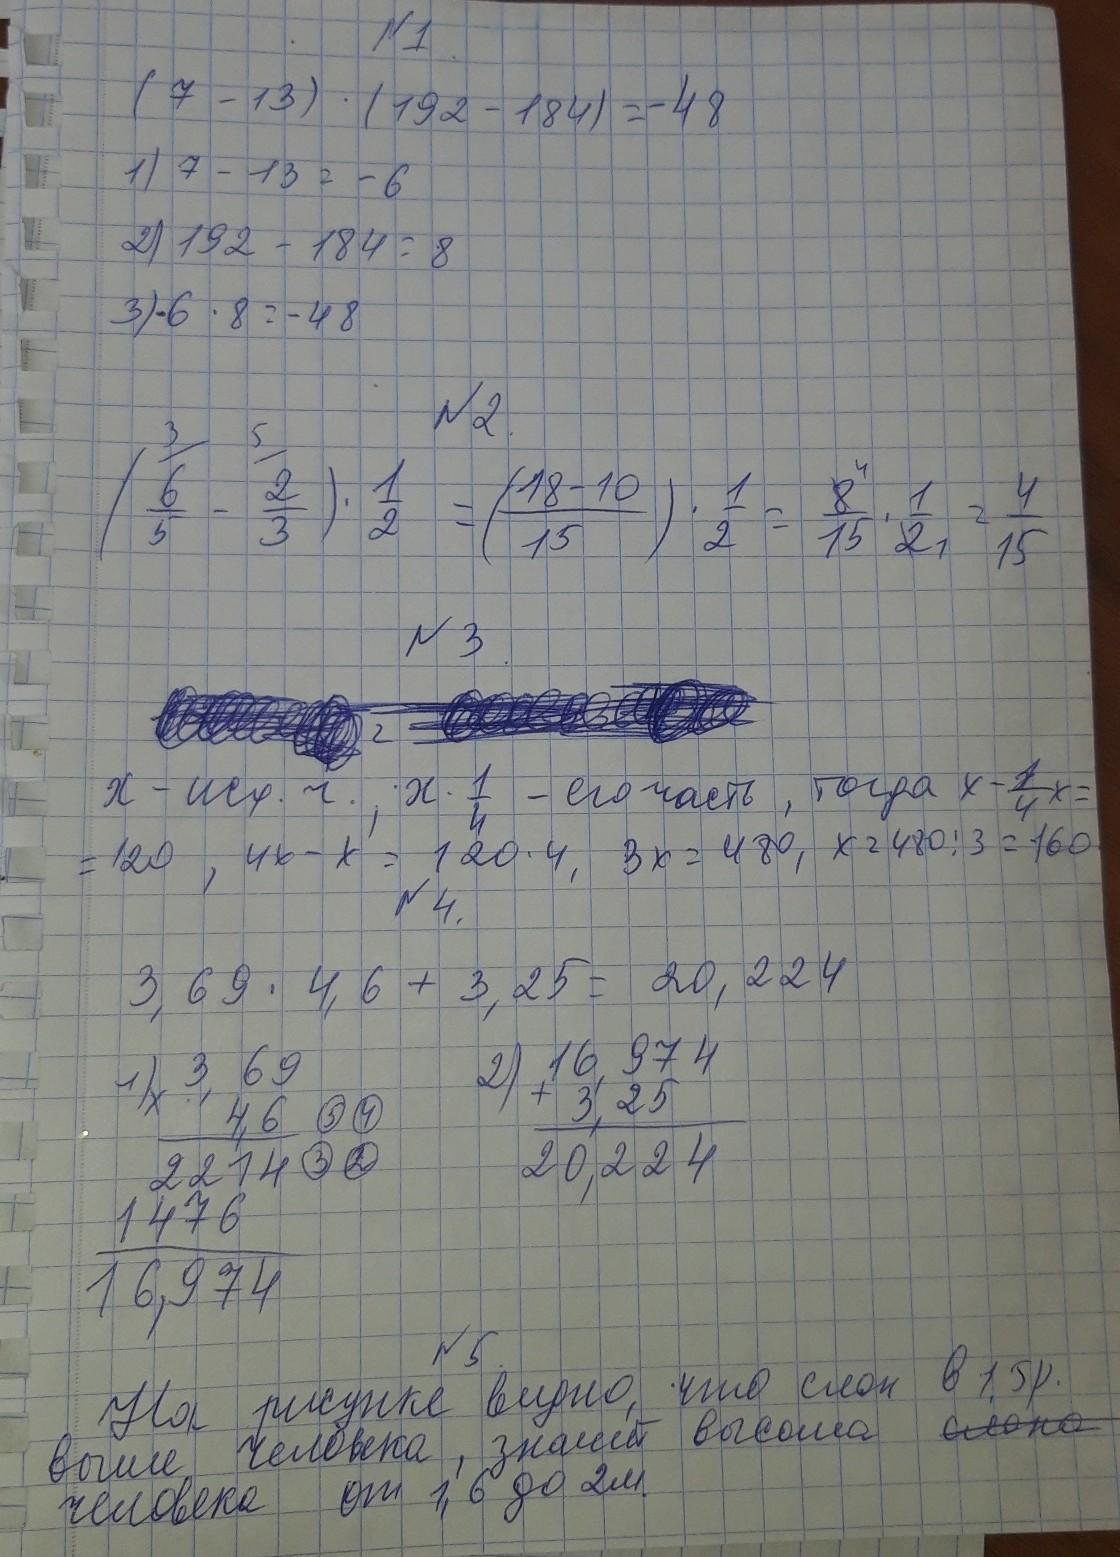 №1
(7 - 13) · (192 - 184) = -48
1) 7 - 13 = -6
2) 192 - 184 = 8
3) -6 · 8 = -48
№2.
(6/5 - 2/3) · 1/2 = (18-10/15) · 1/2 = 8/15 · 1/2 = 4/15
№3.
x - исх. ч., x · 1/4 - его часть, тогда x - 1/4 x =
= 120, 4x - x = 120 · 4, 3x = 480, x = 480 : 3 = 160
№4.
3,69 · 4,6 + 3,25 = 20,224
1) 3,69 2) 16,974
x 4,6 + 3,25
2214 20,224
1476
16,974
№5.
На рисунке видно, что слон в 1,5 р.
выше человека, значит высота слона
человека от 1,6 до 2м.